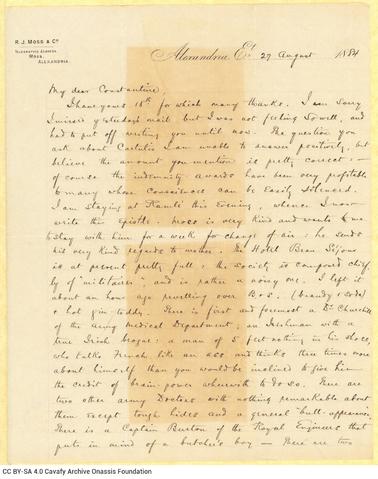 R. J. MOSS & Co
TELEGRAPHIC ADDRESS,
MOSS,
ALEXANDRIA.
Alexandria, Et. 27 August 1884
My dear Constantine,
I have yours 18th for which many thanks. I am sorry
I missed yesterday's mail but I was not feeling so well, and
had to put off writing you until now. The question you
ask about I am unable to answer positively, but
believe the amount you mention is pretty correct —
of course the indemnity awards have been very profitable
to many whose consciences can be easily silenced.
I am staying at Ramleh this evening, whence I now
write this Epistle. Moss is very kind and wants me
to stay with him for a week for change of air: he sends
his very kind regards to mother. The Hotel Beau Séjour
is at present pretty full: the society is composed chief-
ly of "militaires" and is rather a noisy one. I left it
about an hour ago revelling over B & S. (brandy & soda)
& hot gin-toddy. There is first and foremost a Dr. Churchill
of the Army Medical Department; an Irishman with a
true Irish brogue: a man of 5 feet nothing in his shoes,
who talks French like an ass and thinks three times more
about himself than you would be inclined to give him
the credit of brain-power wherewith to do so. There are
two other army Doctors with nothing remarkable about
them except tough hides and a general "bull-appearance".
There is a Captain Burton of the Royal Engineers that
puts in mind of a butcher's boy — There are two
CC BY-SA 4.0 Cavafy Archive Onassis Foundation